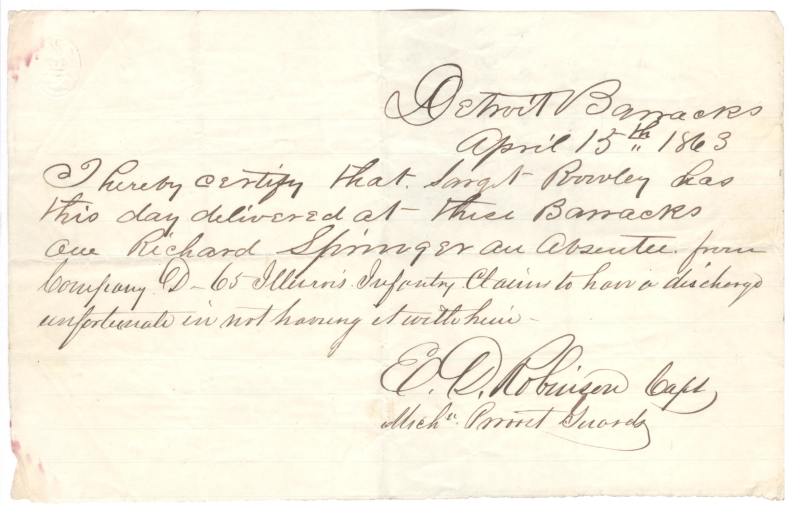 Detroit Barracks
April 15th 1863
I hereby certify that Sargt Rowley has
this day delivered at these Barracks
one Richard Springer an Absentee from
Company D - 65 Illinois Infantry Claims to have a discharge
unfortunate in not having it with him -
E. D. Robinson Capt
Mich. Provost Guards